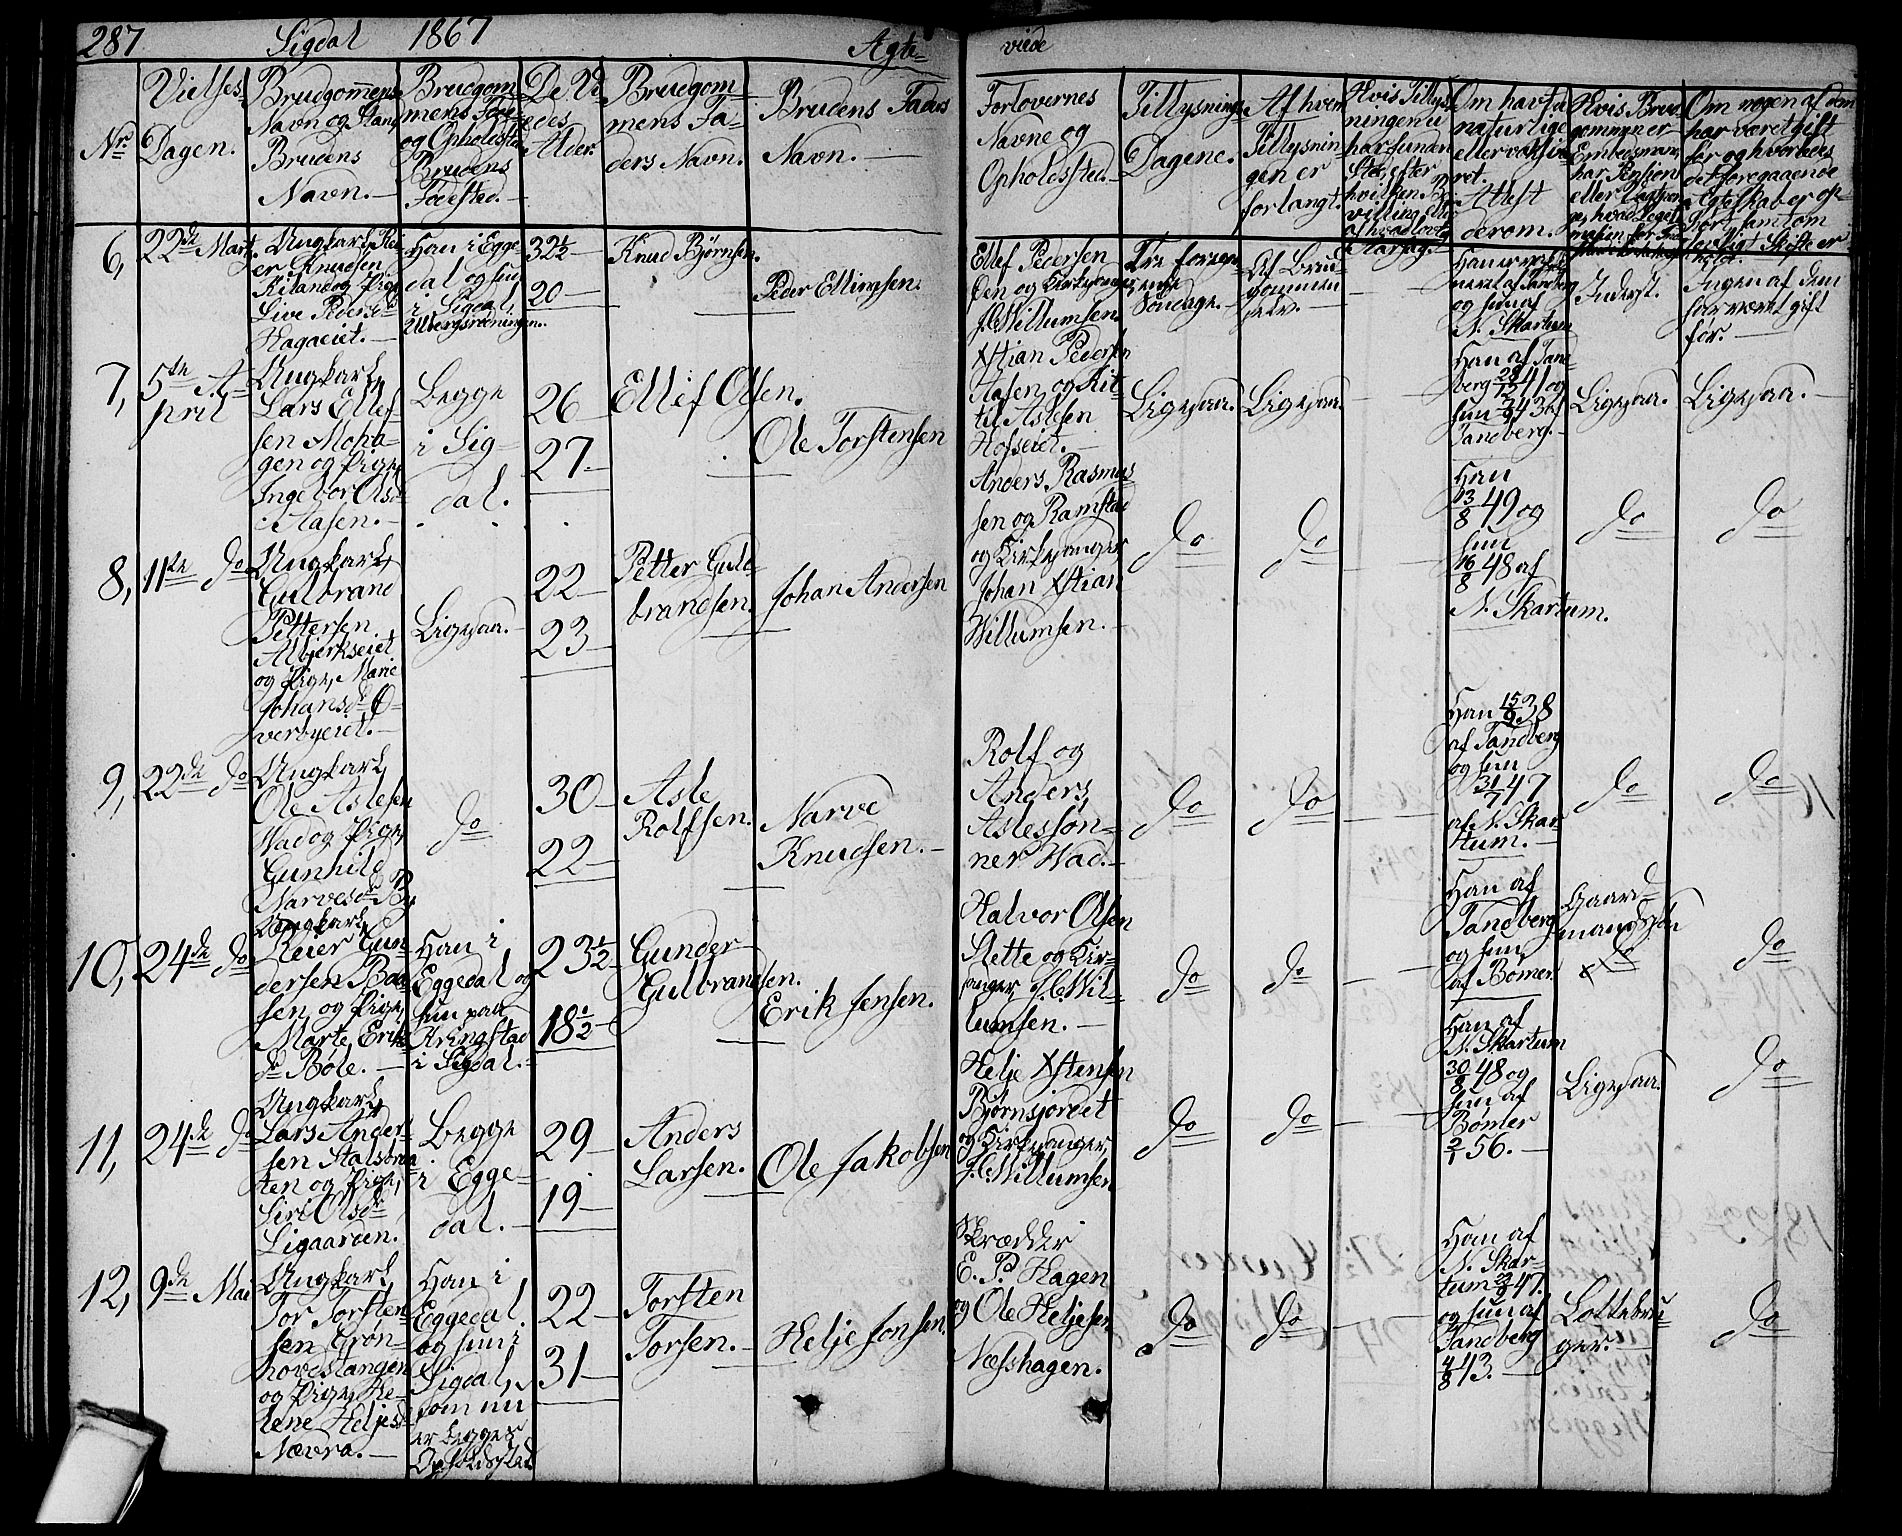 287 Sigdal 1867 Agte- viede
No
Vielses-
Dagen.
Brudgommens
Navn og Stand
Brudens
Navn. —
Brudgom
mens Føde
og Opholdssted
Brudens
Fødested. —
De Vi
edes
Alder.
Brudgom-
mens Fa-
ders Navn.
Brudens Faders
Navn. —
Forlovernes
Navne og
Opholdssted.
Tillysnings-
Dagene.
Af hvem
Tillysnin-
gen er
forlangt.
Hvis Tillys-
ningen ei
har funden
Sted, efter
hvilken Be-
Om havt de
naturlige
eller vaccine-
ret.
Attest
derom.
Hvis Brud-
gommen er
Embedsmand,
har Pension
Om nogen af dem
har været gift
før og hvorledes
det foregaaende
Ægteskab er op-
løst samt om
lovligt Skifte er
holdt.
6, 22de Mart.
Ungkarl Rei
er Knudsen
Kiland og Pige
Live Pedersd
Hagaeiet. —
Han i Egge
dal og hun
i Sigdal,
32½
20 —
Knud Bjørnsen.
Peder Ellingsen.
Ellef Pedersen
Øen og Kirkesanger
J. C. Willumsen.
Tre foregaa-
ende
Søndage.
Af Brud-
gommen
selv.
og hun af
N. Skartum
Inderst.
Ingen af dem
har været gift
før. —
7, 5te A-
pril
Ungkarl
Lars Ellef-
sen Moha-
gen og Pige
Ingebor Olsd
Aasen. —
Begge
i Sig-
dal.
26 —
27 —
Ellef Olsen.
Ole Torstensen
Xstian Pedersen
Aasen og Kit-
til Aslesen
Hofseiet. —
Ligesaa.
Ligesaa.
Han af Tand-
berg 28/12 41 og
Tandberg. —
Ligesaa.
Ligesaa. —
8, 11te do
Ungkarl
Gulbrand
Pettersen
Albjerkseiet
og Pige, Marie
Johansd Ø-
verbyeiet. —
Ligesaa. —
22 —
23
Petter Guld-
brandsen.
Johan Andersen
Anders Rasmus
sen og Ramstad
og Kirkesanger
Johan Xstian
Willumsen. —
do
do
Han
13/8 49 og
hun
16/8 48 af
N. Skartum.
do
do
9, 22de do
Ungkarl
Ole Aslesen
Wad og Pige
Gunhild
Narvesd By
do
30 —
22 —
Asle
Rolfsen.
Narve
Knudsen. —
Rolf og
Anders
Aslessøn-
ner Wad. —
do
do
Han 15/9 38
af Tandberg
og hun
31/7 47
af N. Skar-
tum. —
do
do
10, 24de do
Ungkarl
Reier Gun
dersen Baa
sen og Pige
Marte Eriks
d Bøle. —
Han i
Eggedal og
hun paa
Kringstad
i Sigdal. —
23½ —
18½ —
Gunder
Gulbrandsen.
Erik Jensen.
Halvor Olsen
Slette og Kir-
sanger J. C. Wil-
lumsen. —
do
do
Han af
Tandberg
og hun
af Bømer.
Gaard-
mandssøn
do
11, 24de do
Ungkarl
Lars Ander-
sen Stalsbra
ten og Pige,
Siri Olsd
Ligaarden.
Begge
i Egge-
dal. —
29 —
19 —
Anders
Larsen.
Ole Jakobsen
Helje Xstensen
Bjørnsjordet
og Kirkesanger
J. C. Willumsen
do
do
Han af
N. Skartum
30/8 48 og
hun af
Bømer
2/1 56. —
Ligesaa.
do
12, 9de Mai
Ungkarl
Tor Torsten
sen Grøn-
hovdstangen
og Pige, He-
lene Heljesd
Nævra. —
Han i
Eggedal
og hun i
Sigdal,
som nu
er begges
Opholdssted
22 —
31 —
Torsten
Torsen. —
Helje Jonsen.
Skrædder
E. P. Hagen
og Ole Heljesen
Næsshagen.
do
do
Han af
N. Skar-
tum 22/9 47.
og hun af
Tandberg
4/8 43. —
Lottebru-
ger. —
do